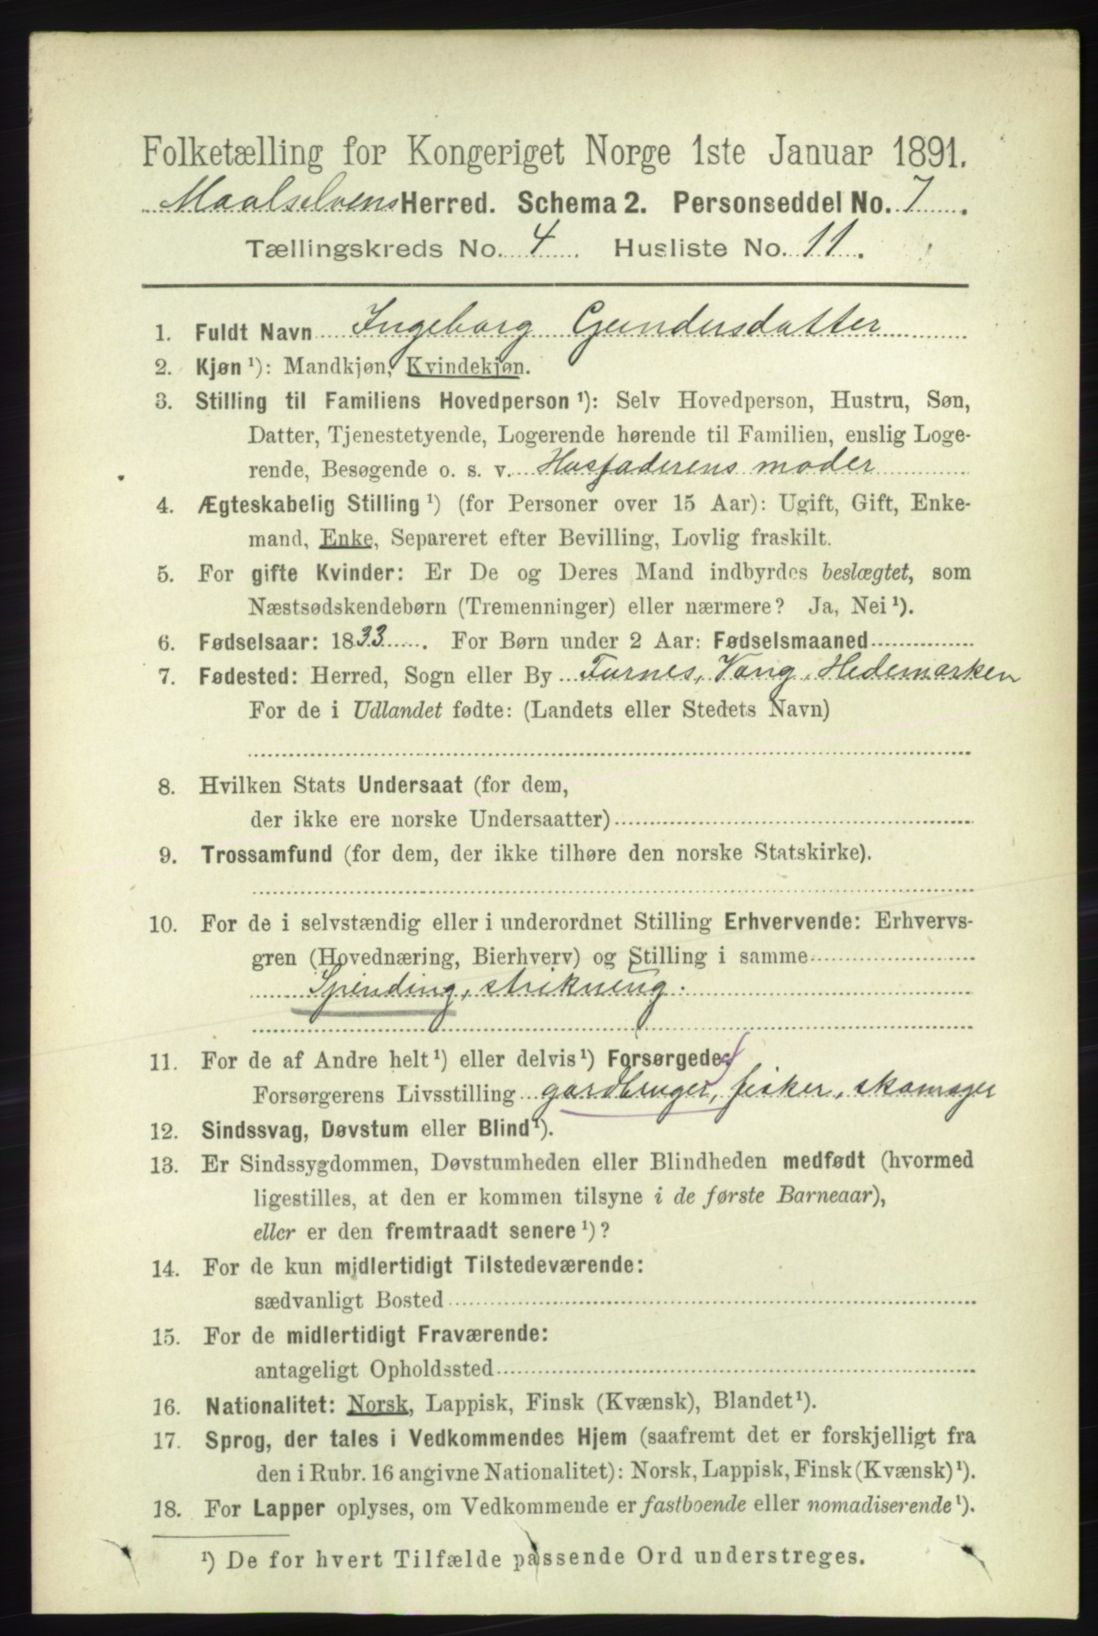 Folketælling for Kongeriget Norge 1ste Januar 1891.
Maalselvens Herred. Schema 2. Personseddel No. 7.
Tællingskreds No. 4. Husliste No. 11.
1. Fuldt Navn Ingeborg Gundersdatter
2. Kjøn ¹): Mandkjøn, Kvindekjøn.
3. Stilling til Familiens Hovedperson ¹): Selv Hovedperson, Hustru, Søn,
Datter, Tjenestetyende, Logerende hørende til Familien, enslig Loge-
rende, Besøgende o. s. v. Husfaderens moder
4. Ægteskabelig Stilling ¹) (for Personer over 15 Aar): Ugift, Gift, Enke-
mand, Enke, Separeret efter Bevilling, Lovlig fraskilt.
5. For gifte Kvinder: Er De og Deres Mand indbyrdes beslægtet, som
Næstsødskendebørn (Tremenninger) eller nærmere? Ja, Nei ¹).
6. Fødselsaar: 1833. For Børn under 2 Aar: Fødselsmaaned
7. Fødested: Herred, Sogn eller By Furnes, Vang, Hedemarken
For de i Udlandet fødte: (Landets eller Stedets Navn)
8. Hvilken Stats Undersaat (for dem,
der ikke ere norske Undersaatter)
9. Trossamfund (for dem, der ikke tilhøre den norske Statskirke).
10. For de i selvstændig eller i underordnet Stilling Erhvervende: Erhvervs-
gren (Hovednæring, Bierhverv) og Stilling i samme
Spinding, strikning.
11. For de af Andre helt ¹) eller delvis ¹) Forsørgede:
Forsørgerens Livsstilling gardbruger, fisker, skomager
12. Sindssvag, Døvstum eller Blind ¹).
13. Er Sindssygdommen, Døvstumheden eller Blindheden medfødt (hvormed
ligestilles, at den er kommen tilsyne i de første Barneaar),
eller er den fremtraadt senere ¹)?
14. For de kun midlertidigt Tilstedeværende:
sædvanligt Bosted
15. For de midlertidigt Fraværende:
antageligt Opholdssted
16. Nationalitet: Norsk, Lappisk, Finsk (Kvænsk), Blandet ¹).
17. Sprog, der tales i Vedkommendes Hjem (saafremt det er forskjelligt fra
den i Rubr. 16 angivne Nationalitet): Norsk, Lappisk, Finsk (Kvænsk) ¹).
18. For Lapper oplyses, om Vedkommende er fastboende eller nomadiserende ¹).
¹) De for hvert Tilfælde passende Ord understreges.